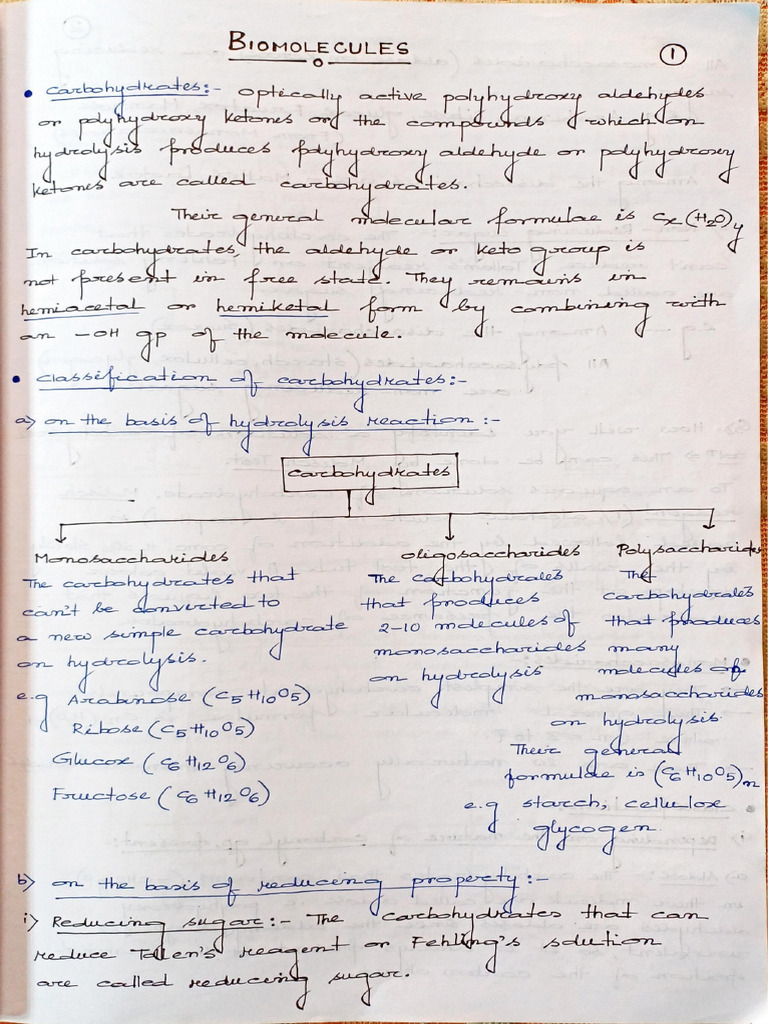 BIOMOLECULES
1
• Carbohydrates:- Optically active polyhydroxy aldehydes
or polyhydroxy ketones or the compounds which on
hydrolysis produces polyhydroxy aldehyde or polyhydroxy
ketones are called carbohydrates.
Their general molecular formulae is Cx(H2O)y
In carbohydrates, the aldehyde or keto group is
not present in free state. They remains in
hemiacetal or hemiketal form by combining with
an -OH gp of the molecule.
• Classification of carbohydrates:-
a) on the basis of hydrolysis reaction:-
Carbohydrates
Monosaccharides
The carbohydrates that
can't be converted to
a new simple carbohydrate
on hydrolysis.
e.g Arabinose (C5H10O5)
Ribose (C5H10O5)
Glucose (C6H12O6)
Fructose (C6H12O6)
Oligosaccharides
The carbohydrates
that produces
2-10 molecules of
monosaccharides
on hydrolysis
Polysaccharides
The
carbohydrates
that produces
many
molecules of
monosaccharides
on hydrolysis
Their general
formulae is (C6H10O5)n
e.g starch, cellulose
glycogen
b) on the basis of reducing property:-
i) Reducing sugar:- The carbohydrates that can
reduce Tollen's reagent or Fehling's solution
are called reducing sugar.